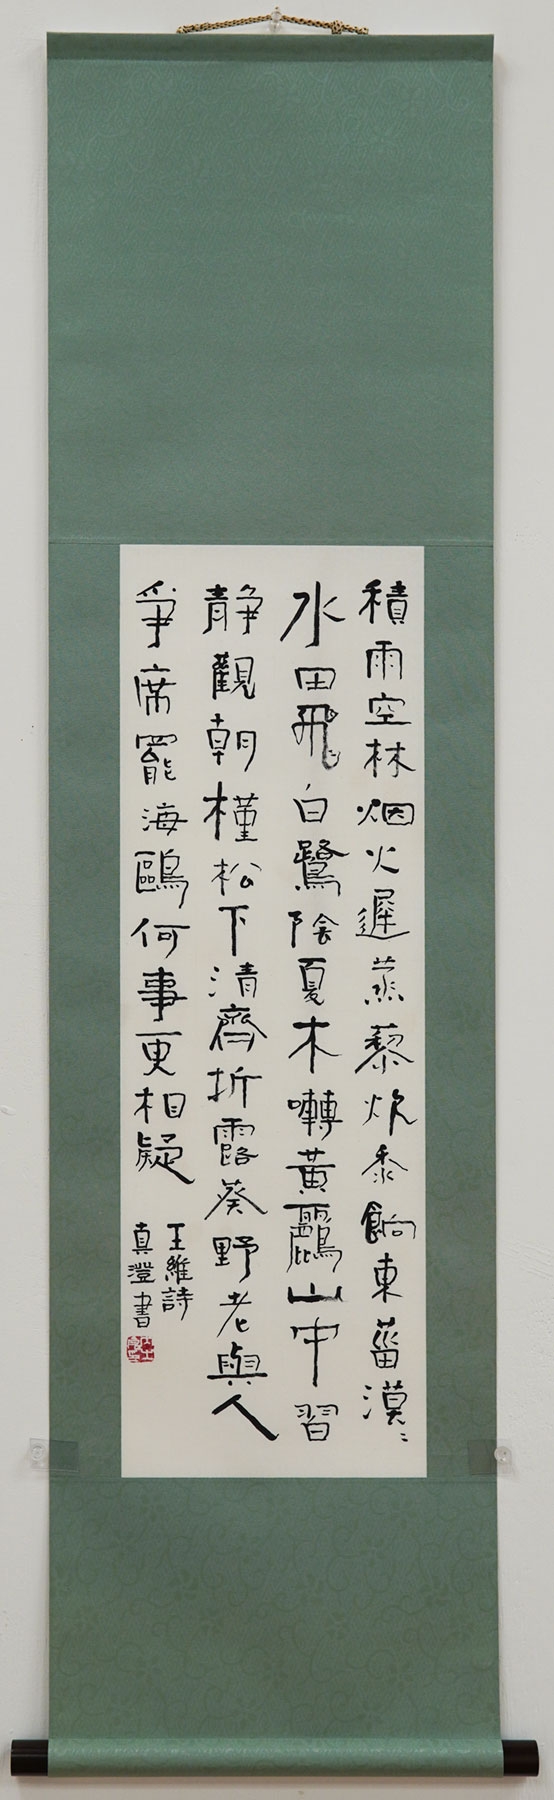 積雨空林烟火遲蒸藜炊黍餉東菑漠〻
水田飛白鷺陰夏木囀黃鸝山中習
靜觀朝槿松下清齋折露葵野老與人
爭席罷海鷗何事更相疑
王維詩
真澄書